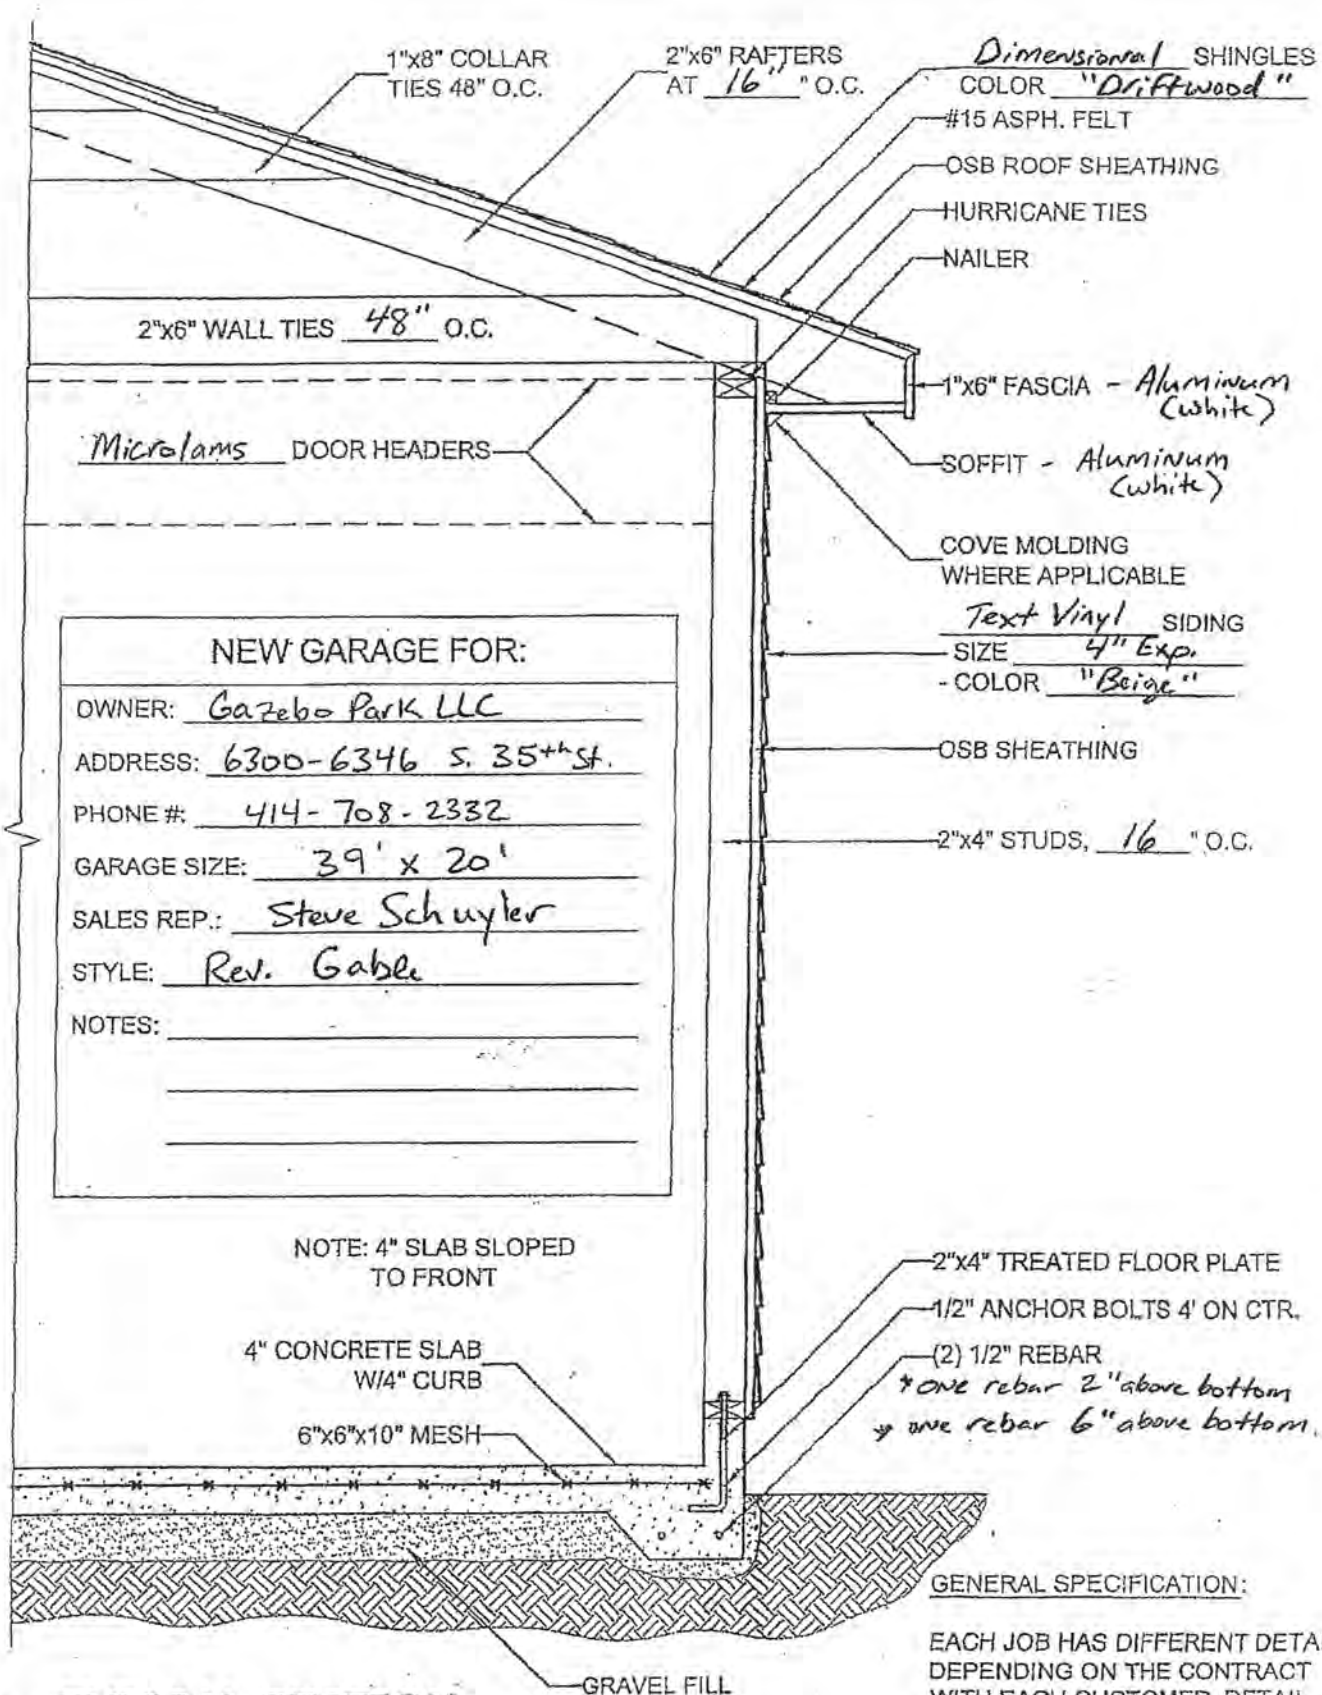 1"x8" COLLAR
TIES 48" O.C.
2"x6" RAFTERS
AT 16" " O.C.
Dimensional SHINGLES
COLOR "Driftwood"
#15 ASPH. FELT
OSB ROOF SHEATHING
HURRICANE TIES
NAILER
2"x6" WALL TIES 48" O.C.
1"x6" FASCIA - Aluminum
(white)
Microlams DOOR HEADERS
SOFFIT - Aluminum
(white)
COVE MOLDING
WHERE APPLICABLE
Text Vinyl SIDING
SIZE 4" Exp.
- COLOR "Beige"
OSB SHEATHING
2"x4" STUDS, 16 " O.C.
NEW GARAGE FOR:
OWNER: Gazebo Park LLC
ADDRESS: 6300-6346 S. 35th St.
PHONE #: 414-708-2332
GARAGE SIZE: 39' x 20'
SALES REP.: Steve Schuyler
STYLE: Rev. Gable
NOTES:
NOTE: 4" SLAB SLOPED
TO FRONT
4" CONCRETE SLAB
W/4" CURB
6"x6"x10" MESH
2"x4" TREATED FLOOR PLATE
1/2" ANCHOR BOLTS 4' ON CTR.
(2) 1/2" REBAR
* one rebar 2" above bottom
* one rebar 6" above bottom.
GRAVEL FILL
GENERAL SPECIFICATION:
EACH JOB HAS DIFFERENT DETA
DEPENDING ON THE CONTRACT
WITH EACH CUSTOMER. DETAIL